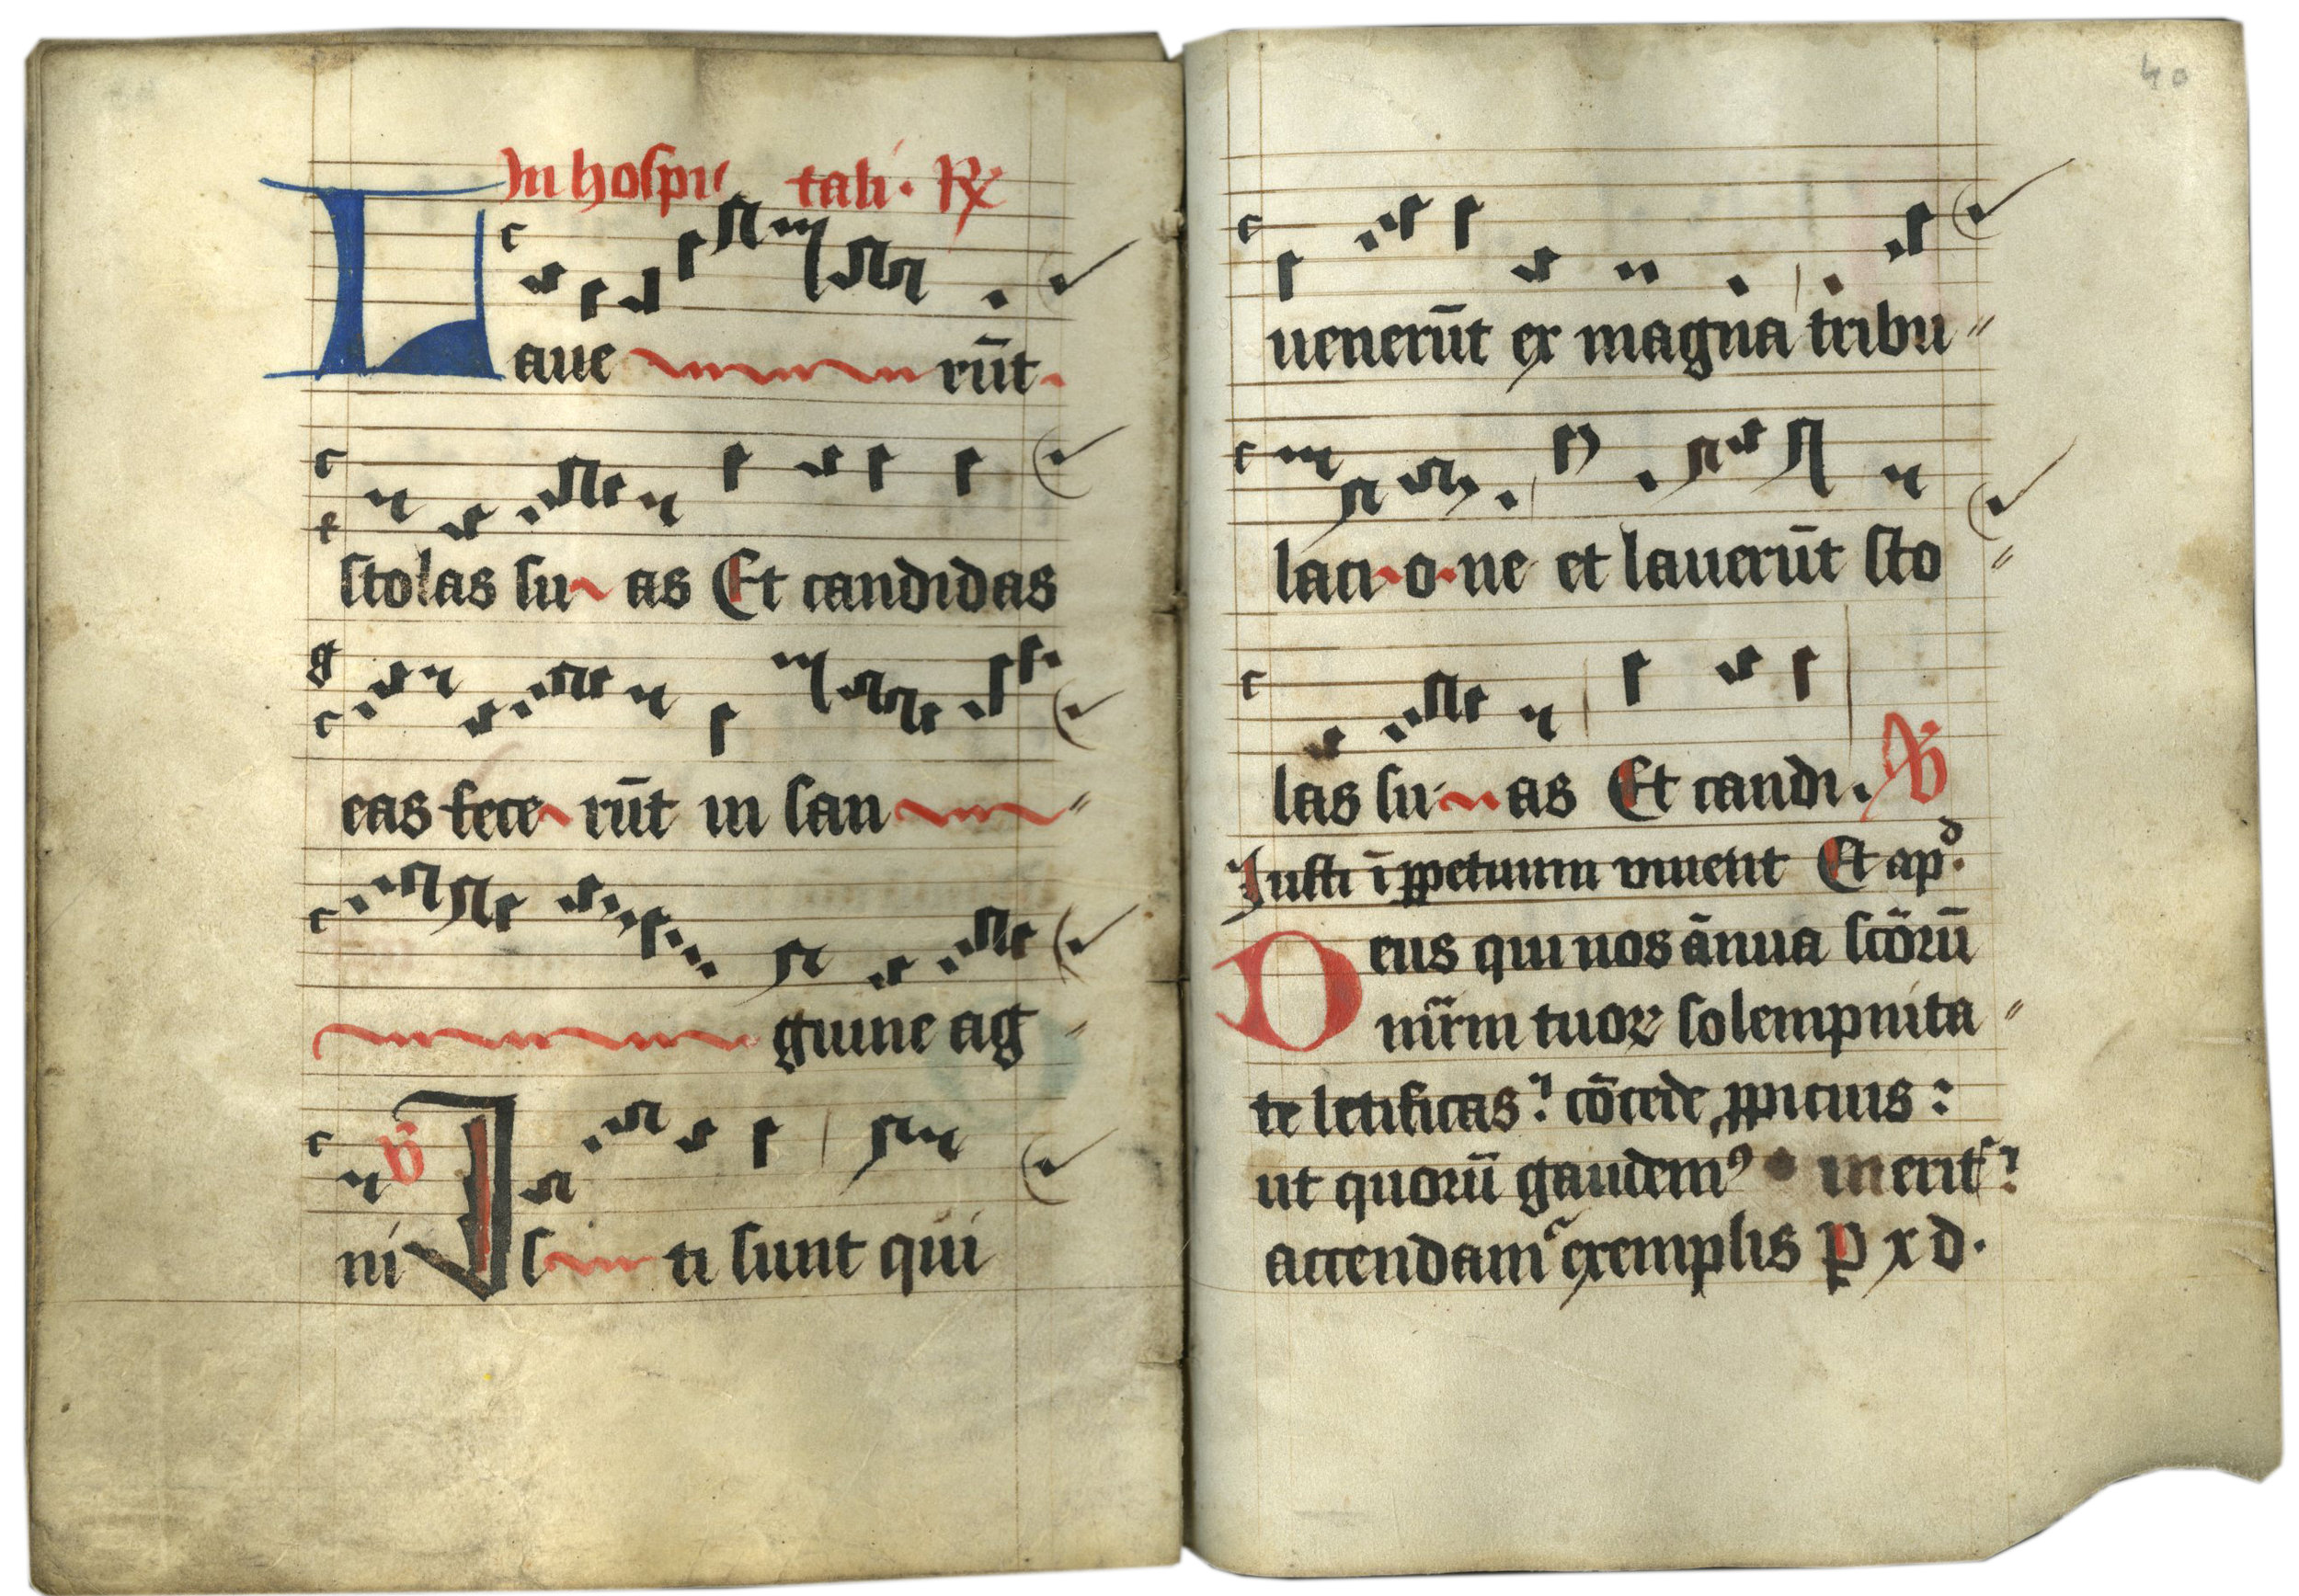 In hospi tali. R℣
Laue rūt
stolas su as Et candidas
eas fece rūt in san
guine ag
ni ℣ Is ti sunt qui
40
uenerūt ex magna tribu
laci o ne et lauerūt sto
las su as Et candi. ℣
Justi ī ꝑpetuum viuent Et apᵈ.
Deus qui nos ānua scōrū
mr̄m tuoꝝ solempnita
te letificas? cōcede ꝓpicius:
ut quorū gaudemꝰ merit?
accendamᷣ exemplis p x d.